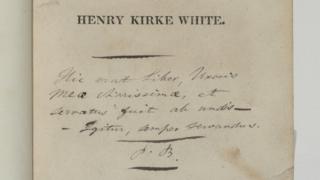 HENRY KIRKE WHITE.
Hic erat Liber, Uxoris
Meæ Carissimæ, et
servatus fuit ab undis—
– Igitur, semper servandus.
P. B.